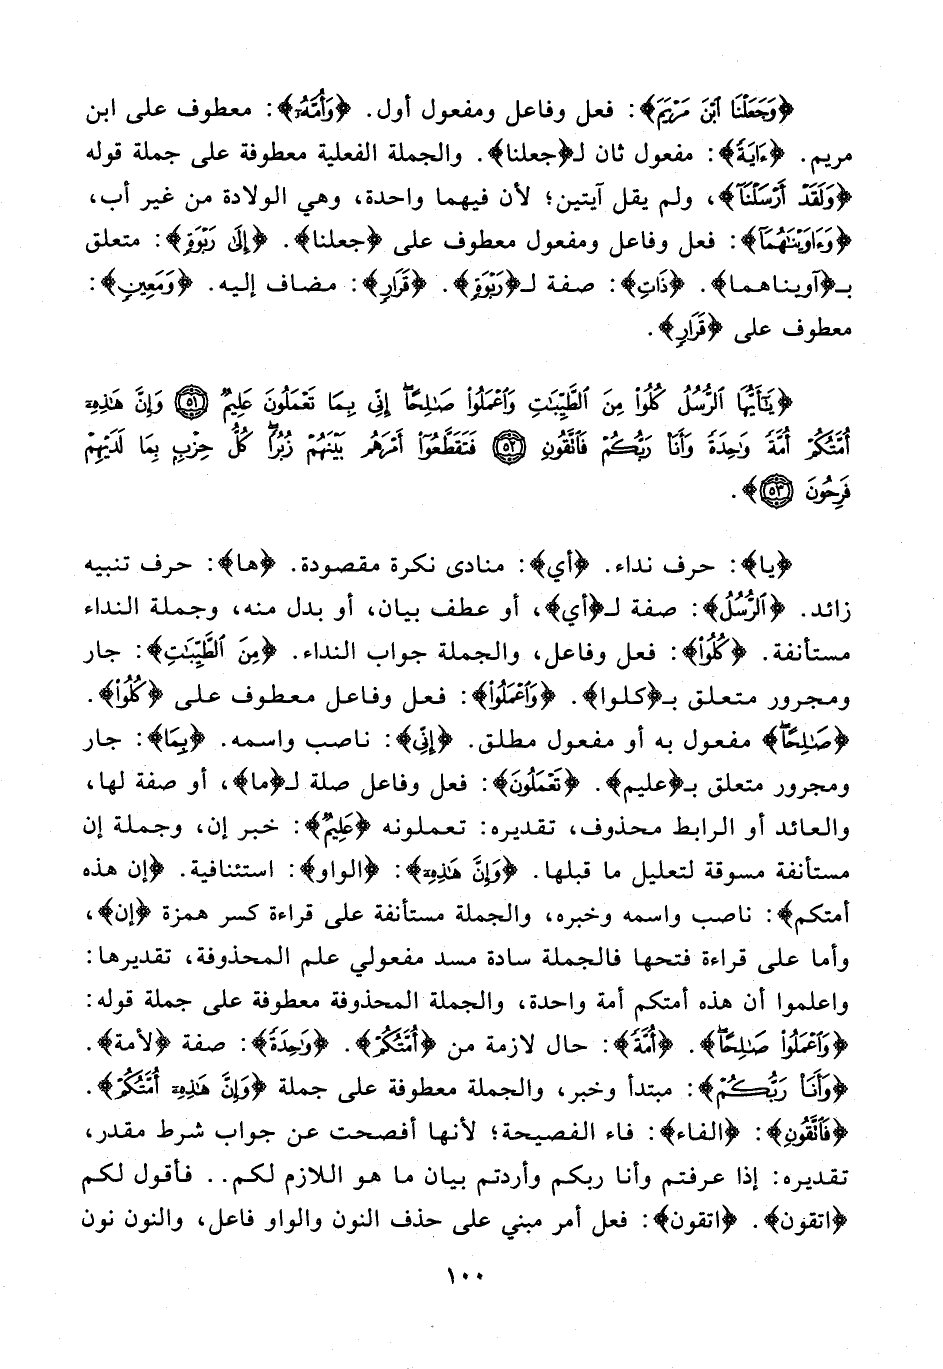 ﴿وَجَعَلْنَا ٱبْنَ مَرْيَمَ﴾: فعل وفاعل ومفعول أول. ﴿وَأُمَّهُۥٓ﴾: معطوف على ابن
مريم. ﴿ءَايَةً﴾: مفعول ثان لـ﴿جعلنا﴾. والجملة الفعلية معطوفة على جملة قوله
﴿وَلَقَدْ أَرْسَلْنَآ﴾، ولم يقل آيتين؛ لأن فيهما واحدة، وهي الولادة من غير أب،
﴿وَءَاوَيْنَٰهُمَآ﴾: فعل وفاعل ومفعول معطوف على ﴿جعلنا﴾. ﴿إِلَىٰ رَبْوَةٍ﴾: متعلق
بـ﴿آويناهما﴾. ﴿ذَاتِ﴾: صفة لـ﴿رَبْوَةٍ﴾. ﴿قَرَارٍ﴾: مضاف إليه. ﴿وَمَعِينٍ﴾:
معطوف على ﴿قَرَارٍ﴾.
﴿يَٰٓأَيُّهَا ٱلرُّسُلُ كُلُوا۟ مِنَ ٱلطَّيِّبَٰتِ وَٱعْمَلُوا۟ صَٰلِحًا ۖ إِنِّى بِمَا تَعْمَلُونَ عَلِيمٌ ٥١ وَإِنَّ هَٰذِهِۦٓ
أُمَّتُكُمْ أُمَّةً وَٰحِدَةً وَأَنَا۠ رَبُّكُمْ فَٱتَّقُونِ ٥٢ فَتَقَطَّعُوٓا۟ أَمْرَهُم بَيْنَهُمْ زُبُرًا ۖ كُلُّ حِزْبٍۭ بِمَا لَدَيْهِمْ
فَرِحُونَ ٥٣﴾.
﴿يا﴾: حرف نداء. ﴿أي﴾: منادى نكرة مقصودة. ﴿ها﴾: حرف تنبيه
زائد. ﴿ٱلرُّسُلُ﴾: صفة لـ﴿أي﴾، أو عطف بيان، أو بدل منه، وجملة النداء
مستأنفة. ﴿كُلُوا۟﴾: فعل وفاعل، والجملة جواب النداء. ﴿مِنَ ٱلطَّيِّبَٰتِ﴾: جار
ومجرور متعلق بـ﴿كلوا﴾. ﴿وَٱعْمَلُوا۟﴾: فعل وفاعل معطوف على ﴿كُلُوا۟﴾.
﴿صَٰلِحًا ۖ﴾ مفعول به أو مفعول مطلق. ﴿إِنِّى﴾: ناصب واسمه. ﴿بِمَا﴾: جار
ومجرور متعلق بـ﴿عليم﴾. ﴿تَعْمَلُونَ﴾: فعل وفاعل صلة لـ﴿ما﴾، أو صفة لها،
والعائد أو الرابط محذوف، تقديره: تعملونه ﴿عَلِيمٌ﴾: خبر إن، وجملة إن
مستأنفة مسوقة لتعليل ما قبلها. ﴿وَإِنَّ هَٰذِهِۦٓ﴾: ﴿الواو﴾: استئنافية. ﴿إن هذه
أمتكم﴾: ناصب واسمه وخبره، والجملة مستأنفة على قراءة كسر همزة ﴿إن﴾،
وأما على قراءة فتحها فالجملة سادة مسد مفعولي علم المحذوفة، تقديرها:
واعلموا أن هذه أمتكم أمة واحدة، والجملة المحذوفة معطوفة على جملة قوله:
﴿وَٱعْمَلُوا۟ صَٰلِحًا ۖ﴾. ﴿أُمَّةً﴾: حال لازمة من ﴿أُمَّتُكُمْ﴾. ﴿وَٰحِدَةً﴾: صفة ﴿لأمة﴾.
﴿وَأَنَا۠ رَبُّكُمْ﴾: مبتدأ وخبر، والجملة معطوفة على جملة ﴿وَإِنَّ هَٰذِهِۦٓ أُمَّتُكُمْ﴾.
﴿فَٱتَّقُونِ﴾: ﴿الفاء﴾: فاء الفصيحة؛ لأنها أفصحت عن جواب شرط مقدر،
تقديره: إذا عرفتم وأنا ربكم وأردتم بيان ما هو اللازم لكم.. فأقول لكم
﴿اتقون﴾. ﴿اتقون﴾: فعل أمر مبني على حذف النون والواو فاعل، والنون نون
١٠٠